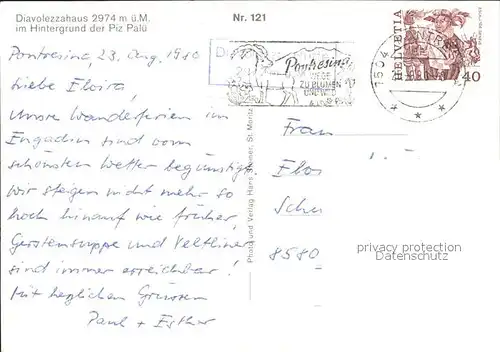 Diavolezzahaus 2974 m ü.M.
im Hintergrund der Piz Palü
Nr. 121
Pontresina, 23. Aug. 1980
Liebe Elvira,
Unsre Wanderferien im
Engadin sind vom
schönsten Wetter begünstigt.
Wir steigen nicht mehr so
hoch hinauf wie früher,
Gerstensuppe und Veltliner
sind immer erreichbar!
Mit herzlichen Grüssen
Paul + Esther
Photo und Verlag Hans Steiner, St. Moritz
Pontresina
WEGE
ZU BLUMEN
UND WILD
1504
HELVETIA
40
Frau
Elvi
Schu
8580
privacy protection
Datenschutz